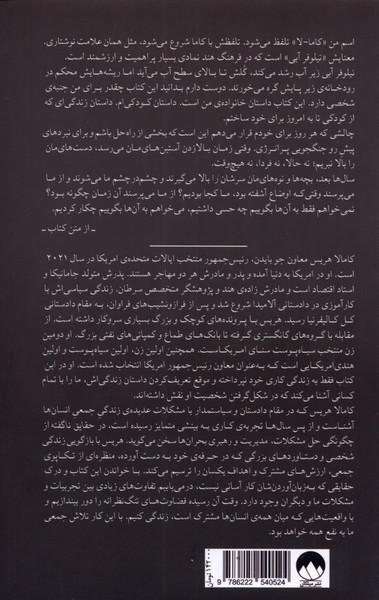 اسم من «کاما-لا» تلفظ می‌شود. تلفظش با کاما شروع می‌شود، مثل همان علامت نوشتاری.
معنایش «نیلوفر آبی» است که در فرهنگ هند نمادی بسیار پراهمیت و ارزشمند است.
نیلوفر آبی زیر آب رشد می‌کند، گلش تا بالای سطح آب می‌آید اما ریشه‌هایش محکم در
رودخانه‌ی زیر پایش گره می‌خورند. دوست دارم بدانید این کتاب چقدر برای من جنبه‌ی
شخصی دارد. این کتاب داستان خانواده‌ی من است. داستان کودکی‌ام. داستان زندگی‌ای که
از کودکی تا به امروز برای خود ساختم.
چالشی که هر روز برای خودم قرار می‌دهم این است که بخشی از راه‌حل باشم و برای نبردهای
پیش رو جنگجویی پرانرژی. وقتی زمان بالازدن آستین‌های‌مان می‌رسد، دست‌های‌مان
را بالا نبریم؛ نه حالا، نه فردا، نه هیچ‌وقت.
سال‌ها بعد، بچه‌ها و نوه‌های‌مان سرشان را بالا می‌گیرند و چشم‌درچشم ما می‌شوند و از ما
می‌پرسند وقتی‌که اوضاع آشفته بود، ما کجا بودیم؟ از ما می‌پرسند آن زمان چگونه بود؟
نمی‌خواهم فقط به آن‌ها بگوییم چه حسی داشتیم، می‌خواهم به آن‌ها بگوییم چکار کردیم.
ـ از متن کتاب ـ
کامالا هریس معاون جو بایدن، رئیس‌جمهور منتخب ایالات متحده‌ی امریکا در سال ۲۰۲۱
است. او در امریکا به دنیا آمده و پدر و مادرش هر دو مهاجر هستند. پدرش متولد جامائیکا و
استاد اقتصاد است و مادرش زاده‌ی هند و پژوهشگر متخصص سرطان. زندگی سیاسی‌اش با
کارآموزی در دادستانی آلامیدا شروع شد و پس از فرازونشیب‌های فراوان، به مقام دادستانی
کل کالیفرنیا رسید. هریس با پرونده‌های کوچک و بزرگ بسیاری سروکار داشته است، از
مقابله با گروه‌های گانگستری گرفته تا بانک‌های طماع و کمپانی‌های نفتی بزرگ. او دومین
زن منتخب سیاه‌پوست سنای امریکاست. همچنین اولین زن، اولین سیاه‌پوست و اولین
هندی‌امریکایی است که به‌عنوان معاون رئیس‌جمهور امریکا انتخاب شده است. او در این
کتاب فقط به زندگی کاری خود نپرداخته و موقع تعریف‌کردن داستان زندگی‌اش، ما را با تمام
کسانی آشنا می‌کند که در شکل گرفتن شخصیت او نقش داشته‌اند.
کامالا هریس که در مقام دادستان و سیاستمدار با مشکلات عدیده‌ی زندگی جمعی انسان‌ها
آشناست و از پس سال‌ها تجربه‌ی کاری به بینشی متمایز رسیده است، در حقایق ناگفته از
چگونگی حل مشکلات، مدیریت و رهبری بحران‌ها سخن می‌گوید. هریس با بازگویی زندگی
شخصی و دستاوردهای بزرگی که در حرفه‌ی خود به دست آورده، منظره‌ای از تکاپوی
جمعی، ارزش‌های مشترک و اهداف یکسان را ترسیم می‌کند. با خواندن این کتاب و درک
حقایقی که به‌زبان‌آوردن‌شان کار آسانی نیست، درمی‌یابیم تفاوت‌های زیادی بین تجربیات و
مشکلات ما و دیگران وجود دارد. وقت آن رسیده قضاوت‌های تنگ‌نظرانه را دور بیندازیم و
با واقعیت‌هایی که میان همه‌ی انسان‌ها مشترک است، زندگی کنیم. با این کار تلاش جمعی
ما به نفع همه خواهد بود.
9 786222 540524
تومان
نشر میلکان